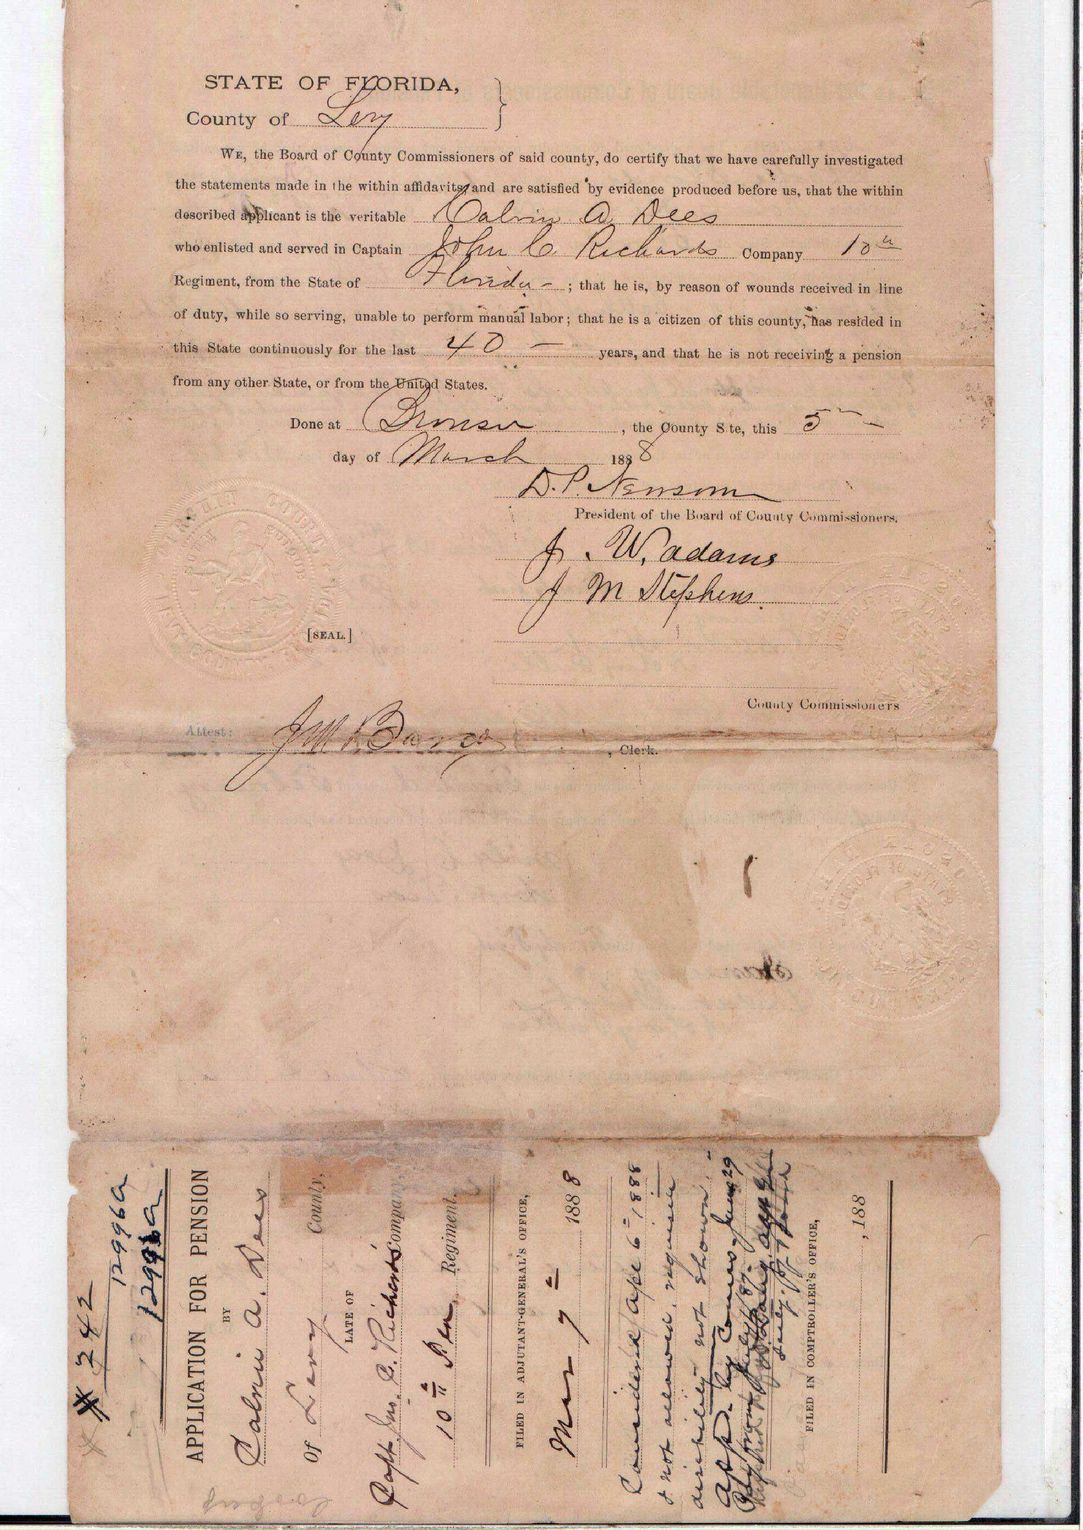 STATE OF FLORIDA,
County of Levy
WE, the Board of County Commissioners of said county, do certify that we have carefully investigated
the statements made in the within affidavits, and are satisfied by evidence produced before us, that the within
described applicant is the veritable Calvin A. Dees
who enlisted and served in Captain John C. Richards Company 10th
Regiment, from the State of Florida - ; that he is, by reason of wounds received in line
of duty, while so serving, unable to perform manual labor; that he is a citizen of this county, has resided in
this State continuously for the last 40 - years, and that he is not receiving a pension
from any other State, or from the United States.
Done at Bronson, the County Site, this 5
day of March 1888
D. P. Newsom
President of the Board of County Commissioners.
J. W. Adams
J M Stephens.
[SEAL.]
County Commissioners
Attest: J M Barco, Clerk.
# 242
12996a
12996a
APPLICATION FOR PENSION
BY
Calvin A. Dees
Of Levy County,
LATE OF
Capt. Jno. C. Richards Company,
10th Regiment.
FILED IN ADJUTANT-GENERAL'S OFFICE,
Mar 7 1888
Considered Apl 6 1888
& not allowed, requisite
disability not shown -
App. by Comrs. June 29
July
FILED IN COMPTROLLER'S OFFICE,
, 188